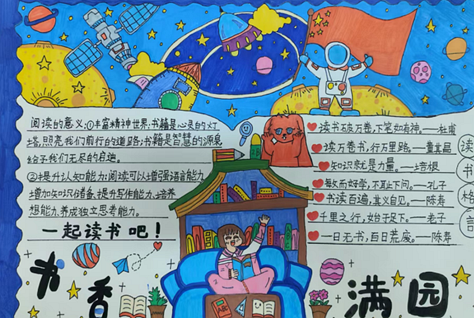 阅读的意义:①丰富精神世界:书籍是心灵的灯
塔,照亮我们前行的道路;书籍是智慧的源泉
给予我们无尽的启迪。
②提升认知能力:阅读可以增强语言能力
增加知识储备、提升写作能力、培养
想能力、养成独立思考能力。
一起读书吧!
读书破万卷,下笔如有神。——杜甫
读万卷书,行万里路。——董其昌
知识就是力量。——培根
敏而好学,不耻下问。——孔子
书读百遍,其义自见。——陈寿
千里之行,始于足下。——老子
一日无书,百日荒废。——陈寿
书香
满园